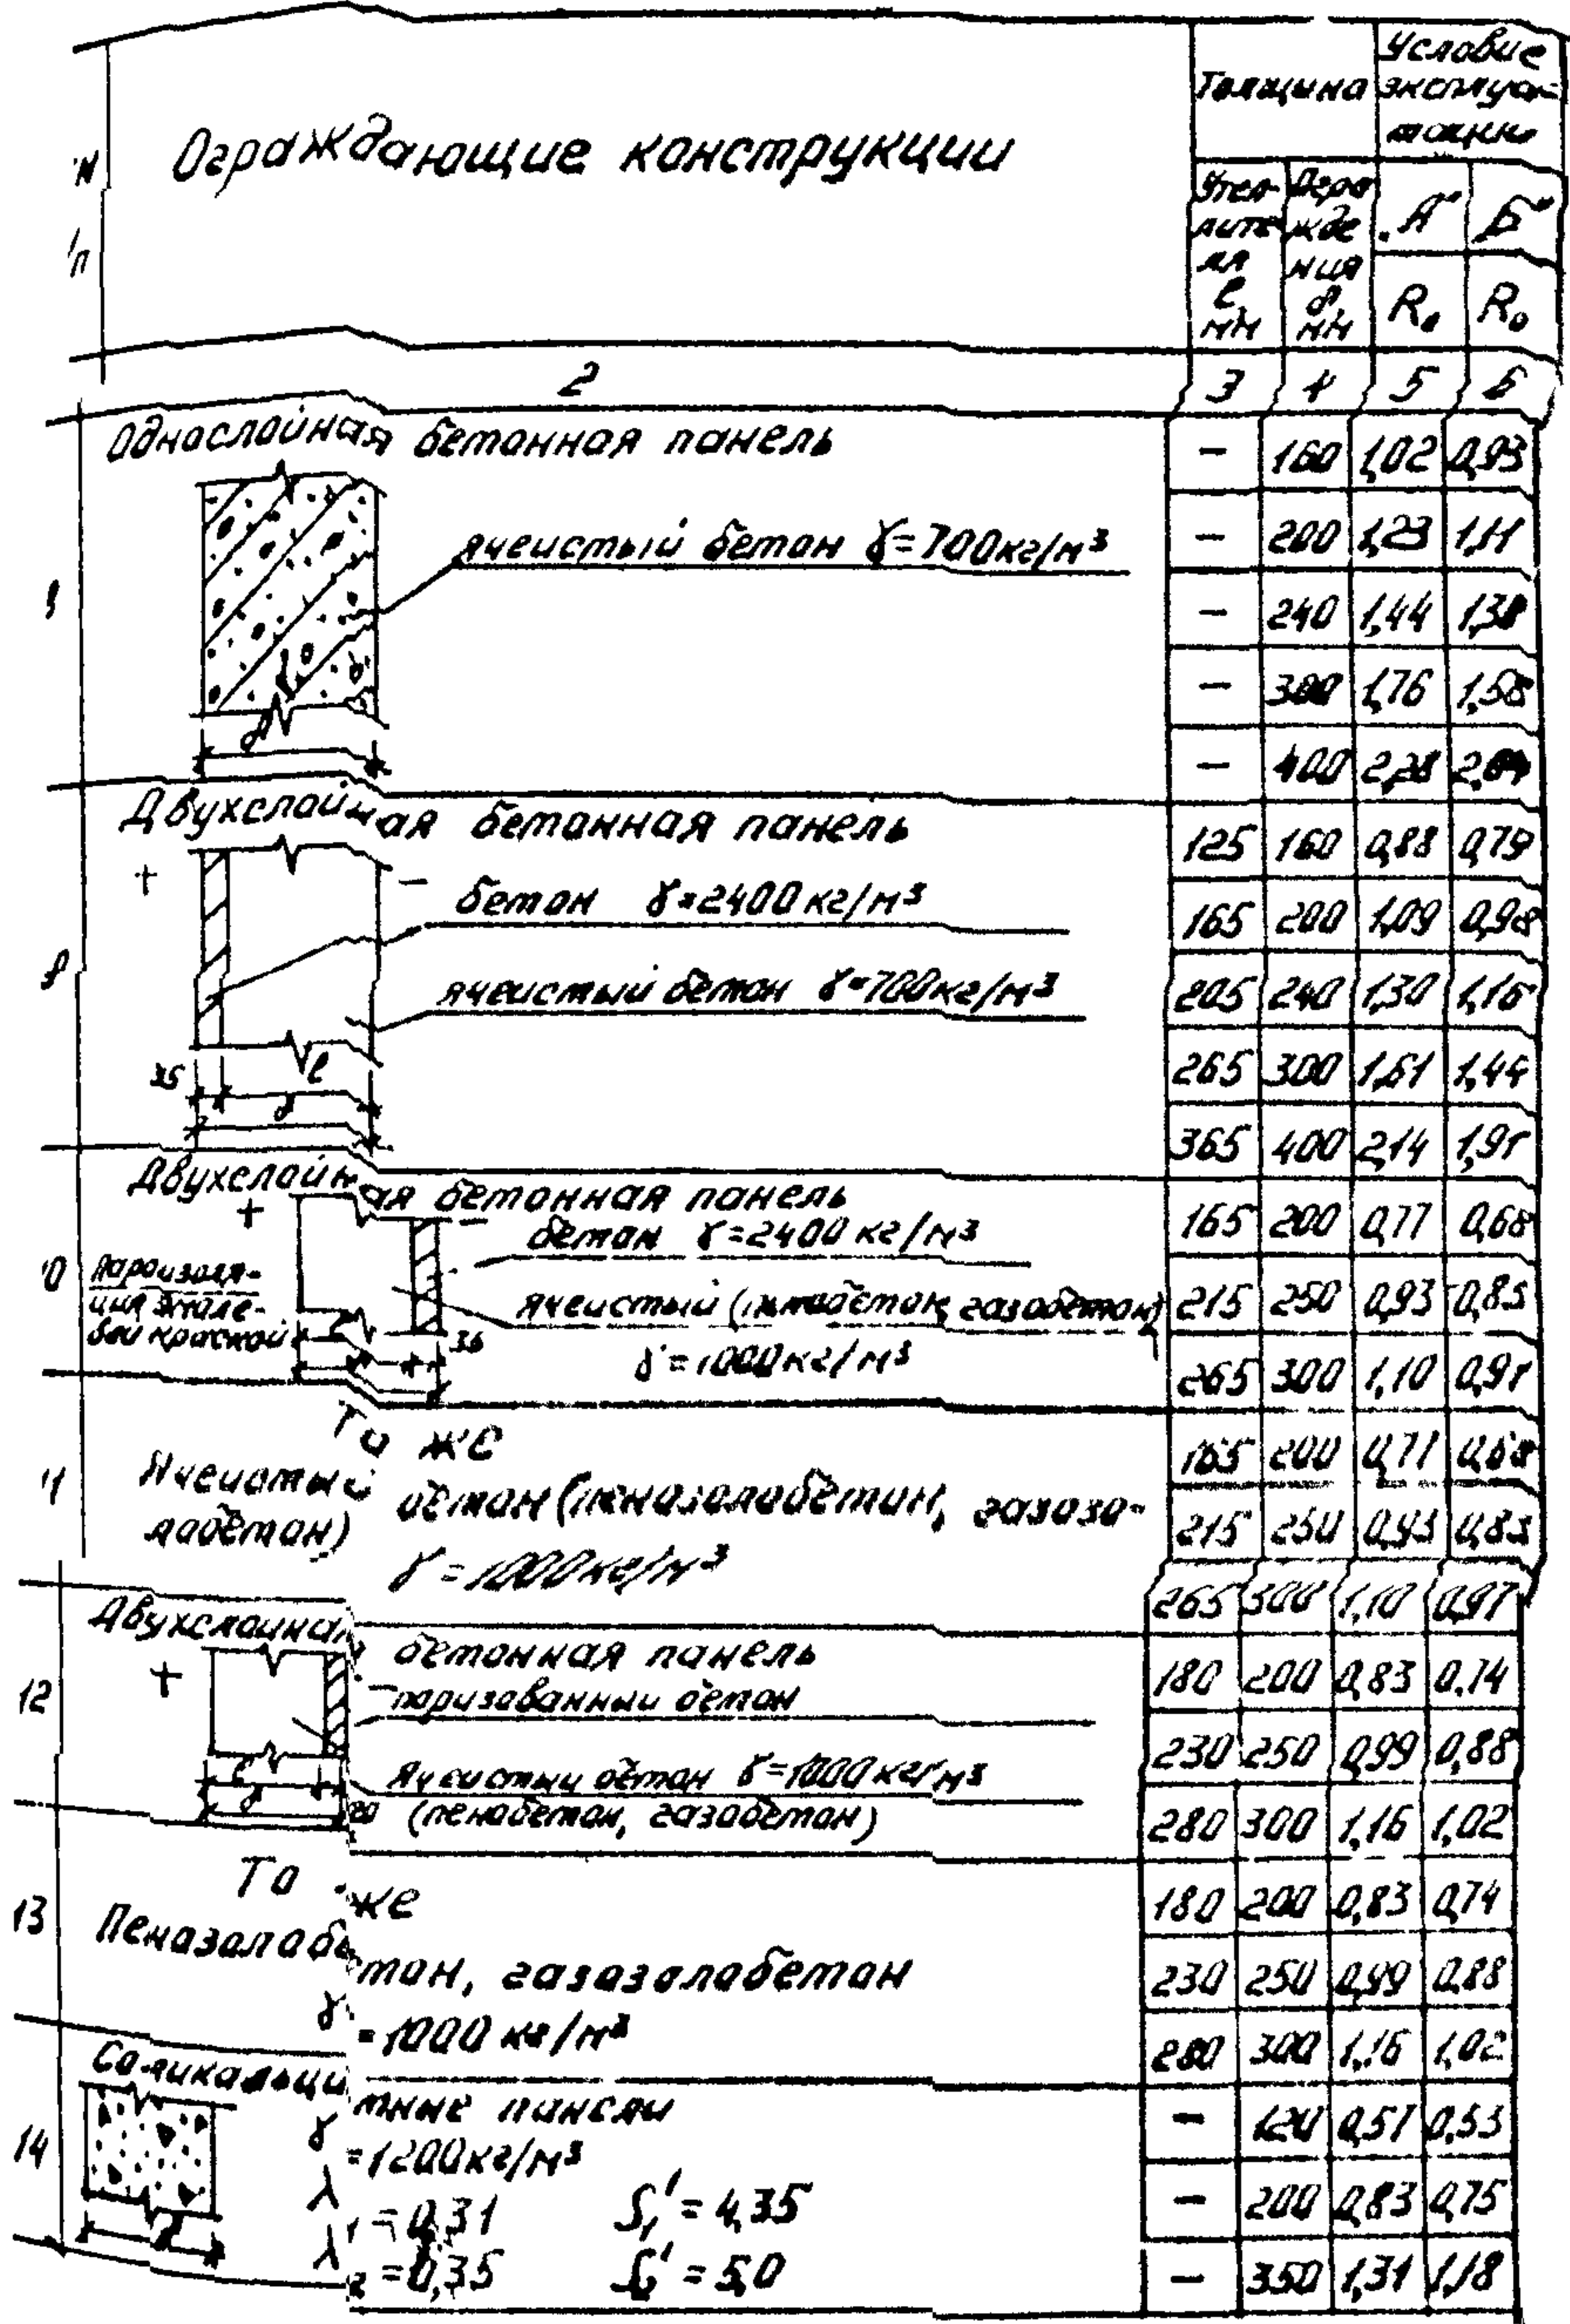 N
/п
Ограждающие конструкции
Толщина
Условие эксплуатации
Утеплителя ℓ, мм
Ограждения δ, мм
"А"
"Б"
R₀
R₀
2
3
4
5
6
Однослойная бетонная панель
ячеистый бетон γ=700кг/м³
δ
— 160 1,02 0,93
— 200 1,23 1,11
— 240 1,44
— 300 1,76 1,58
— 400 2,28
Двухслойная бетонная панель
+ —
бетон γ=2400кг/м³
ячеистый бетон γ=700кг/м³
35 ℓ
δ
125 160 0,88 0,79
165 200 1,09 0,98
205 240 1,30 1,16
265 300 1,61 1,44
365 400 2,14 1,91
0
Двухслойная бетонная панель
+ —
бетон γ=2400кг/м³
Пароизоля-
ция эмале-
вой краской
ячеистый (пенобетон, газобетон)
γ=1000кг/м³
165 200 0,77 0,68
215 250 0,93 0,83
265 300 1,10 0,97
11
То же
Ячеистый бетон (пенозолобетон, газозо-
лобетон)
γ=1000кг/м³
165 200 0,77 0,68
215 250 0,93 0,83
265 300 1,10 0,97
12
Двухслойная бетонная панель
+ —
поризованный бетон
ячеистый бетон γ=1000кг/м³
(пенобетон, газобетон)
ℓ
δ
20
180 200 0,83 0,74
230 250 0,99 0,88
280 300 1,16 1,02
13
То же
Пенозолобетон, газозолобетон
γ=1000кг/м³
180 200 0,83 0,74
230 250 0,99 0,88
280 300 1,16 1,02
14
Силикальцитные панели
γ=1200кг/м³
λ₁=0,31 S₁'=4,35
λ₂=0,35 S₂'=5,0
— 120 0,57 0,53
— 200 0,83 0,75
— 350 1,31 1,18